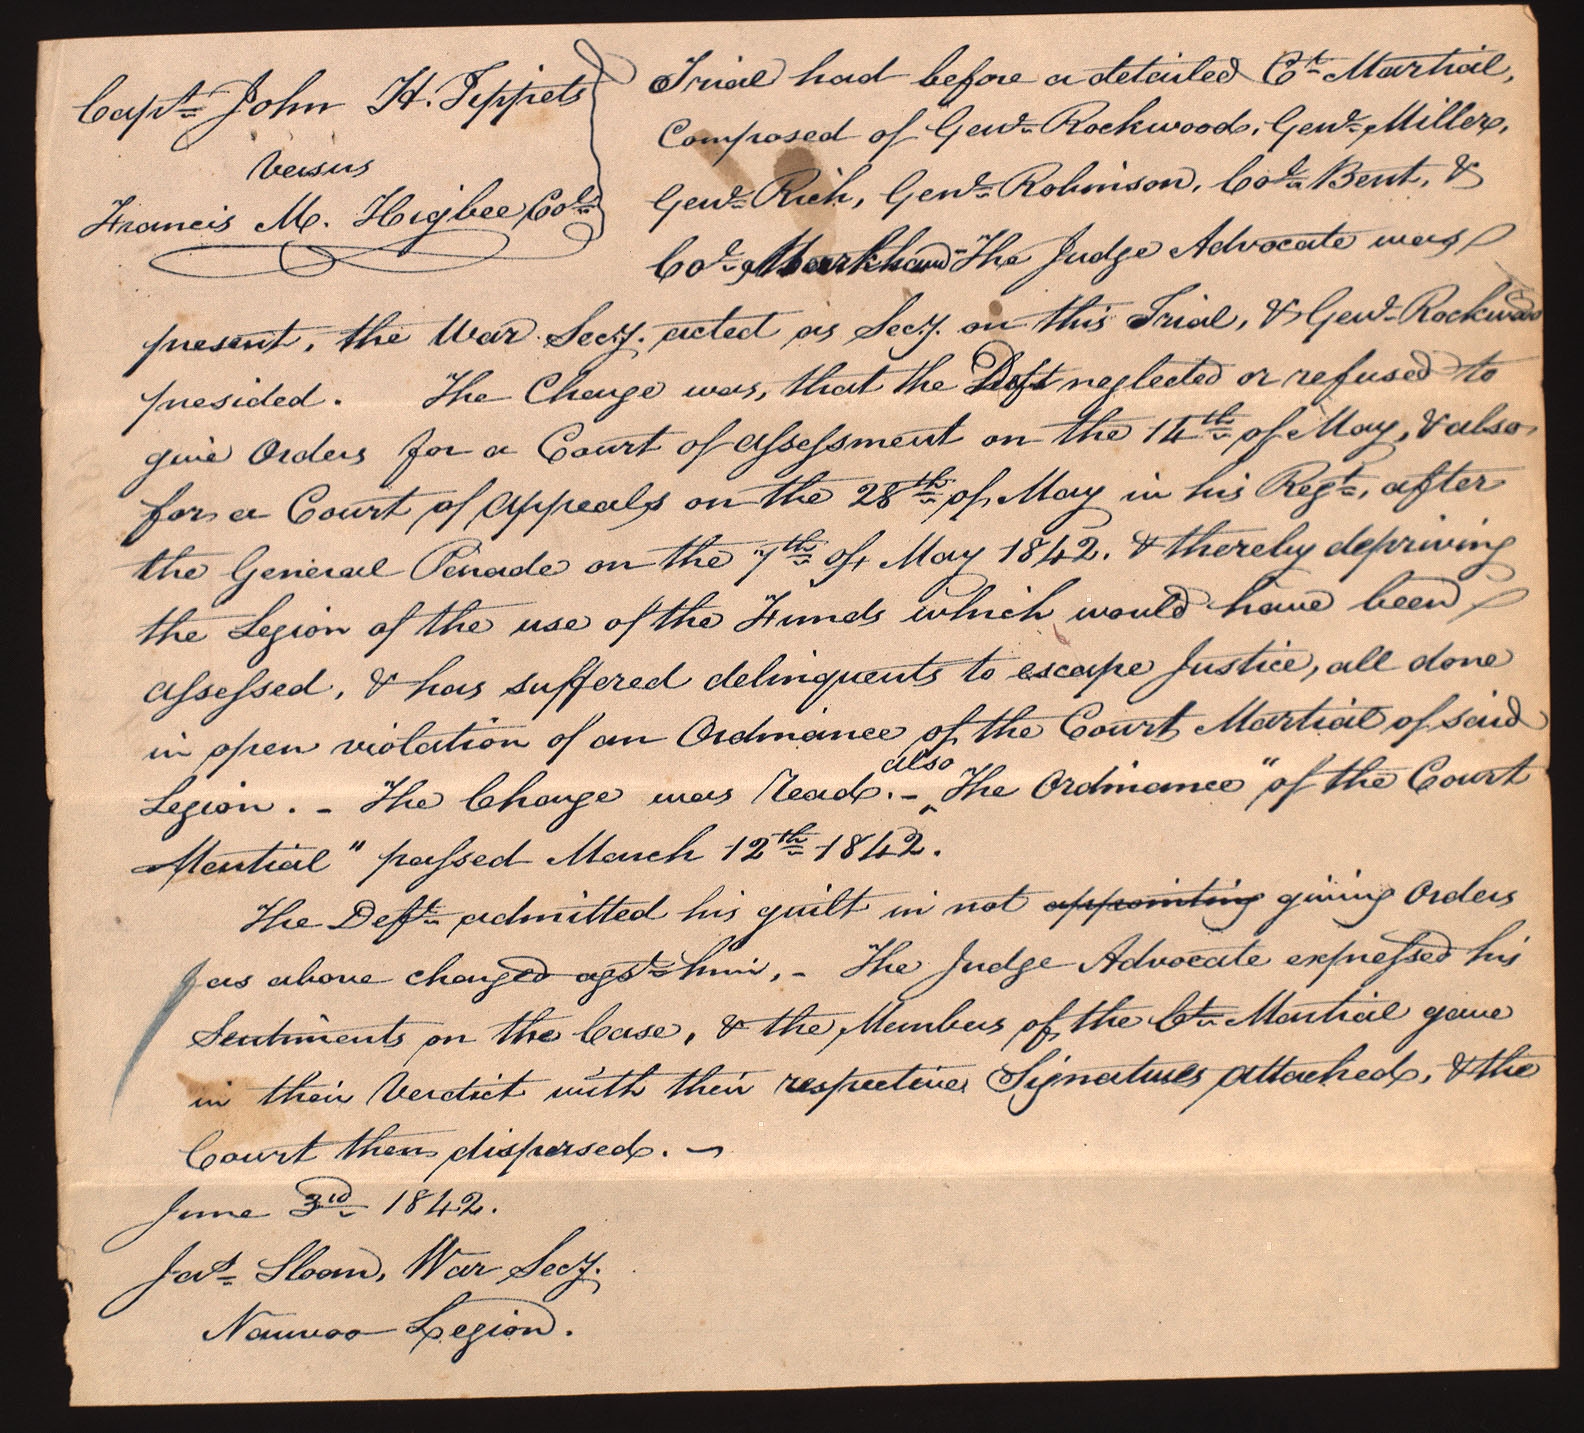 Capt. John H. Tippets
versus
Francis M. Higbee, Col.
Trial had before a detailed Ct. Martial,
Composed of Genl. Rockwood, Genl. Miller,
Genl. Rich, Genl. Robinson, Col. Bent, &
Col. Markham - The Judge Advocate was
present, the War Secy. acted as Secy. on this Trial, & Genl. Rockwood
presided. The Charge was, that the Deft neglected or refused to
give Orders for a Court of assessment on the 14th of May, & also
for a Court of Appeals on the 28th of May in his Regt., after
the General Parade on the 7th of May 1842. & thereby depriving
the Legion of the use of the Funds which would have been
assessed, & has suffered delinquents to escape Justice, all done
in open violation of an Ordinance of the Court Martial of said
Legion. - The Charge was Read. - also The Ordinance "of the Court
Martial" passed March 12th 1842.
The Deft. admitted his guilt in not appointing giving Orders
as above charged agst. him, - The Judge Advocate expressed his
Sentiments on the Case, & the Members of the Ct. Martial gave
in their Verdict with their respective Signatures attached, & the
Court then dispersed. -
June 3rd 1842.
Jas. Sloan, War Secy.
Nauvoo Legion.